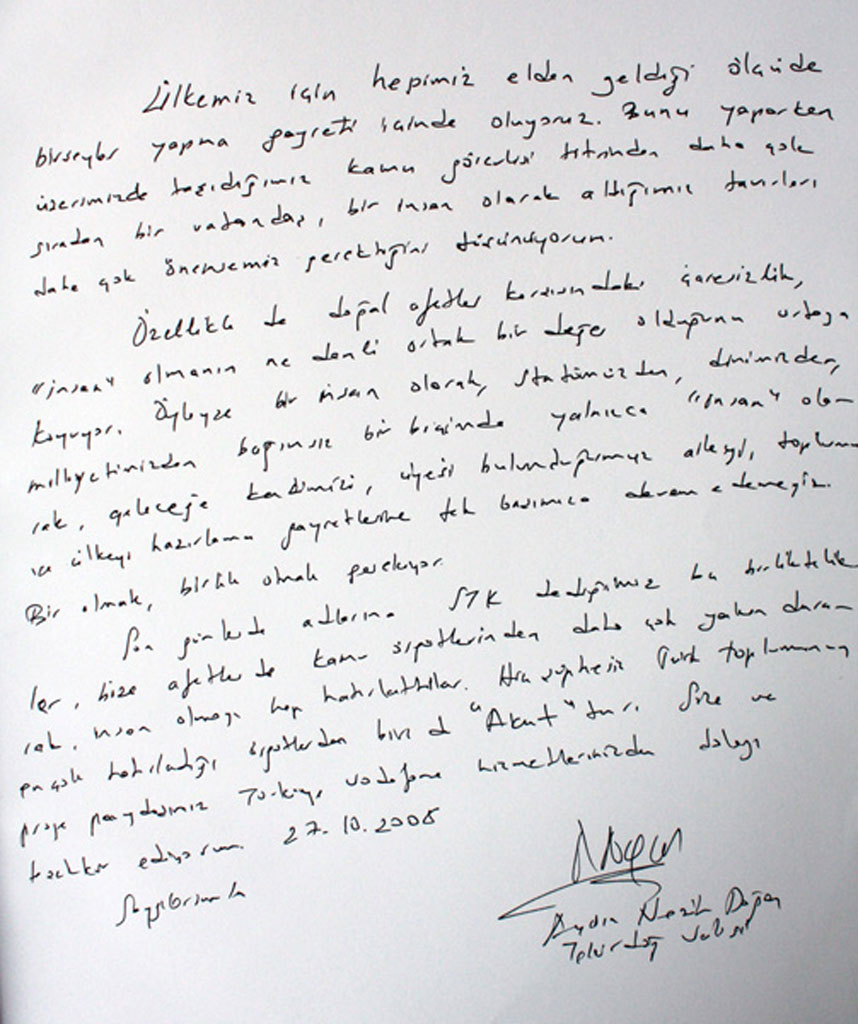 Ülkemiz için hepimiz elden geldiği ölçüde
birşeyler yapma gayreti içinde oluyoruz. Bunu yaparken
üzerimizde taşıdığımız kamu görevlisi titrinden daha çok
sıradan bir vatandaş, bir insan olarak aldığımız tavırları
daha çok önemsemiz gerektiğini düşünüyorum.
Özellikle de doğal afetler karşısındaki çaresizlik,
"insan" olmanın ne denli ortak bir değer olduğunu ortaya
koyuyor. Öyleyse bir insan olarak, statümüzden, dinimizden,
milliyetimizden bağımsız bir biçimde yalnızca "insan" ola-
rak, geleceğe kendimizi, üyesi bulunduğumuz aileyi, toplumu
ve ülkeyi hazırlama gayretlerine tek başımıza devam edemeyiz.
Bir olmak, birlik olmak gerekiyor.
Son günlerde adlarına STK dediğimiz bu birliktelik-
ler, bize afetlerde kamu sıfatlerinden daha çok yakın dura-
rak, insan olmayı hep hatırlattılar. Hiç şüphesiz Türk toplumunun
en çok hatırladığı sıfatlerden biri de "Akut"tur. Size ve
proje paydaşımız Türkiye Vodafone hizmetlerinizden dolayı
teşekkür ediyorum. 27.10.2008
Saygılarımla
Aydın Nezih Doğan
Tekirdağ Valisi